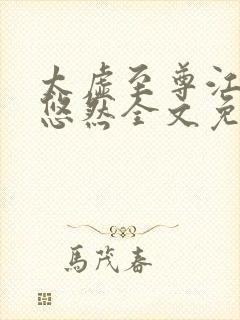 太虚至尊江
悠然全文免
馬茂春